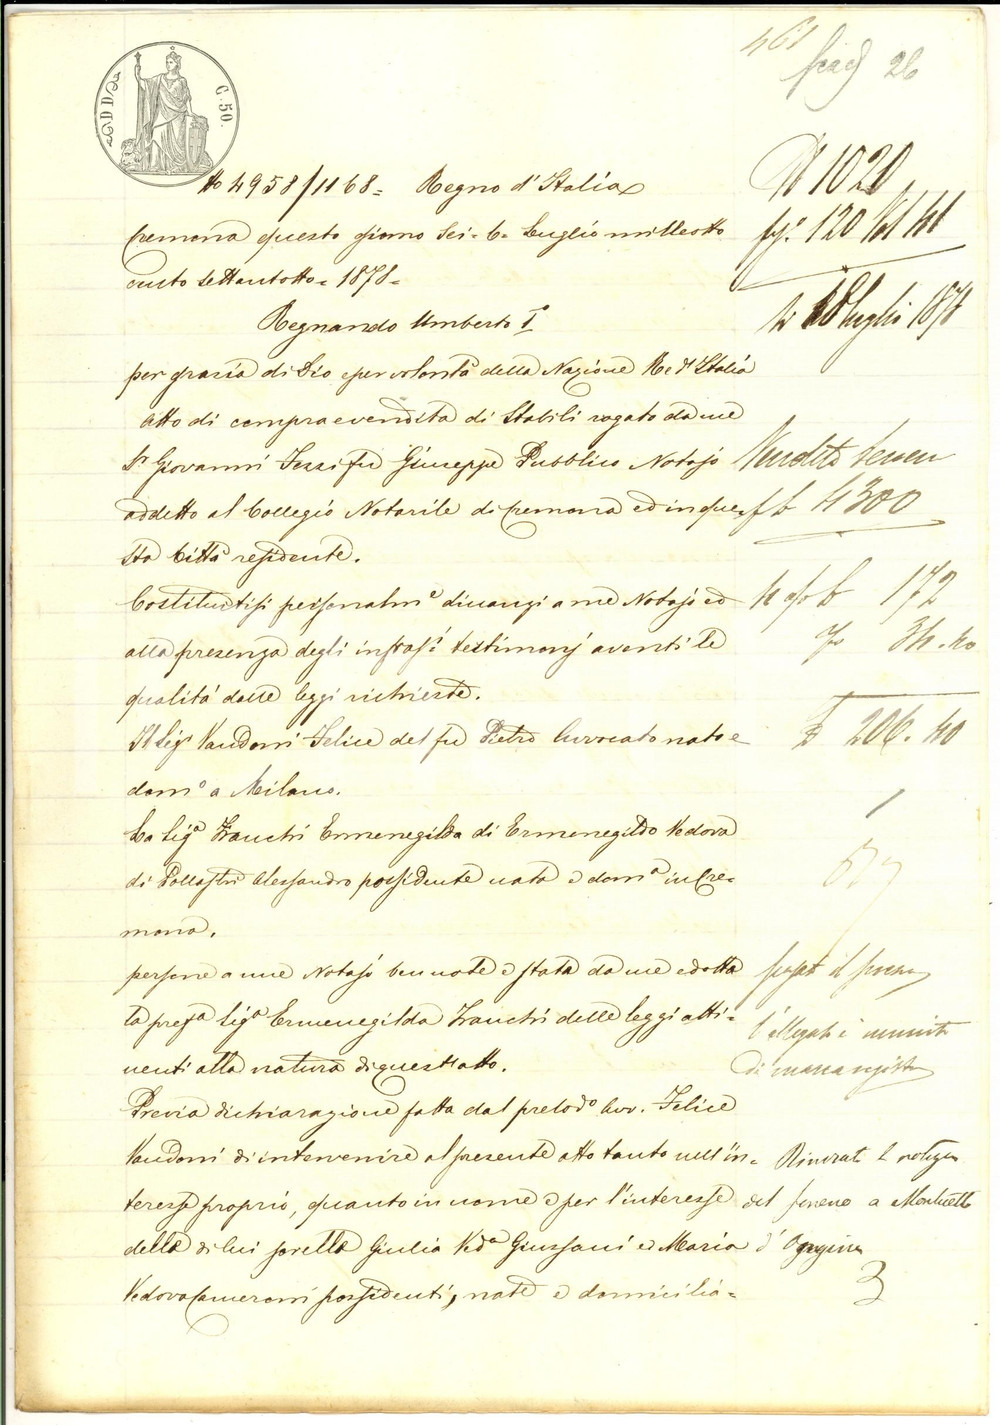 461
26
C. 50.
No 4958/1168= Regno d'Italia
N 1020
Cremona questo giorno Sei = 6 = Luglio milleotto
fg.° 120 Vol
cento settantotto = 1878 =
li 18 luglio 1878
Regnando Umberto I°
per grazia di Dio e per volontà della Nazione Re d'Italia
Atto di compra e vendita di Stabili rogato da me
Dr Giovanni Fezzi fu Giuseppe Pubblico Notajo
Vendita terreni
addetto al Collegio Notarile di Cremona ed in que-
4300
sta Città residente.
Costituitisi personalm.e dinanzi a me Notajo ed
172
alla presenza degli infras.i testimonj aventi le
34.40
qualità dalle leggi richieste.
Il Sig.r Vandoni Felice del fu Pietro Avvocato nato e
206.40
dom.o a Milano.
1
La Sig.a Zanchi Ermenegilda di Ermenegildo Vedova
di Pollastri Alessandro possidente nata e dom.a in Cre-
mona.
persone a me Notajo ben note e stata da me edotta
la pref.a Sig.a Ermenegilda Zanchi delle leggi atti-
nenti alla natura di quest'atto.
di marca registro
Previa dichiarazione fatta dal prelod.o Avv. Felice
Vandoni di intervenire al presente atto tanto nell'in-
teresse proprio, quanto in nome e per l'interesse
del terreno a Monticelli
della di lui sorella Giulia Ved.a Giussani ed Maria
d'Ongina
Vedova Cameroni possidenti, nate e domicilia-
3